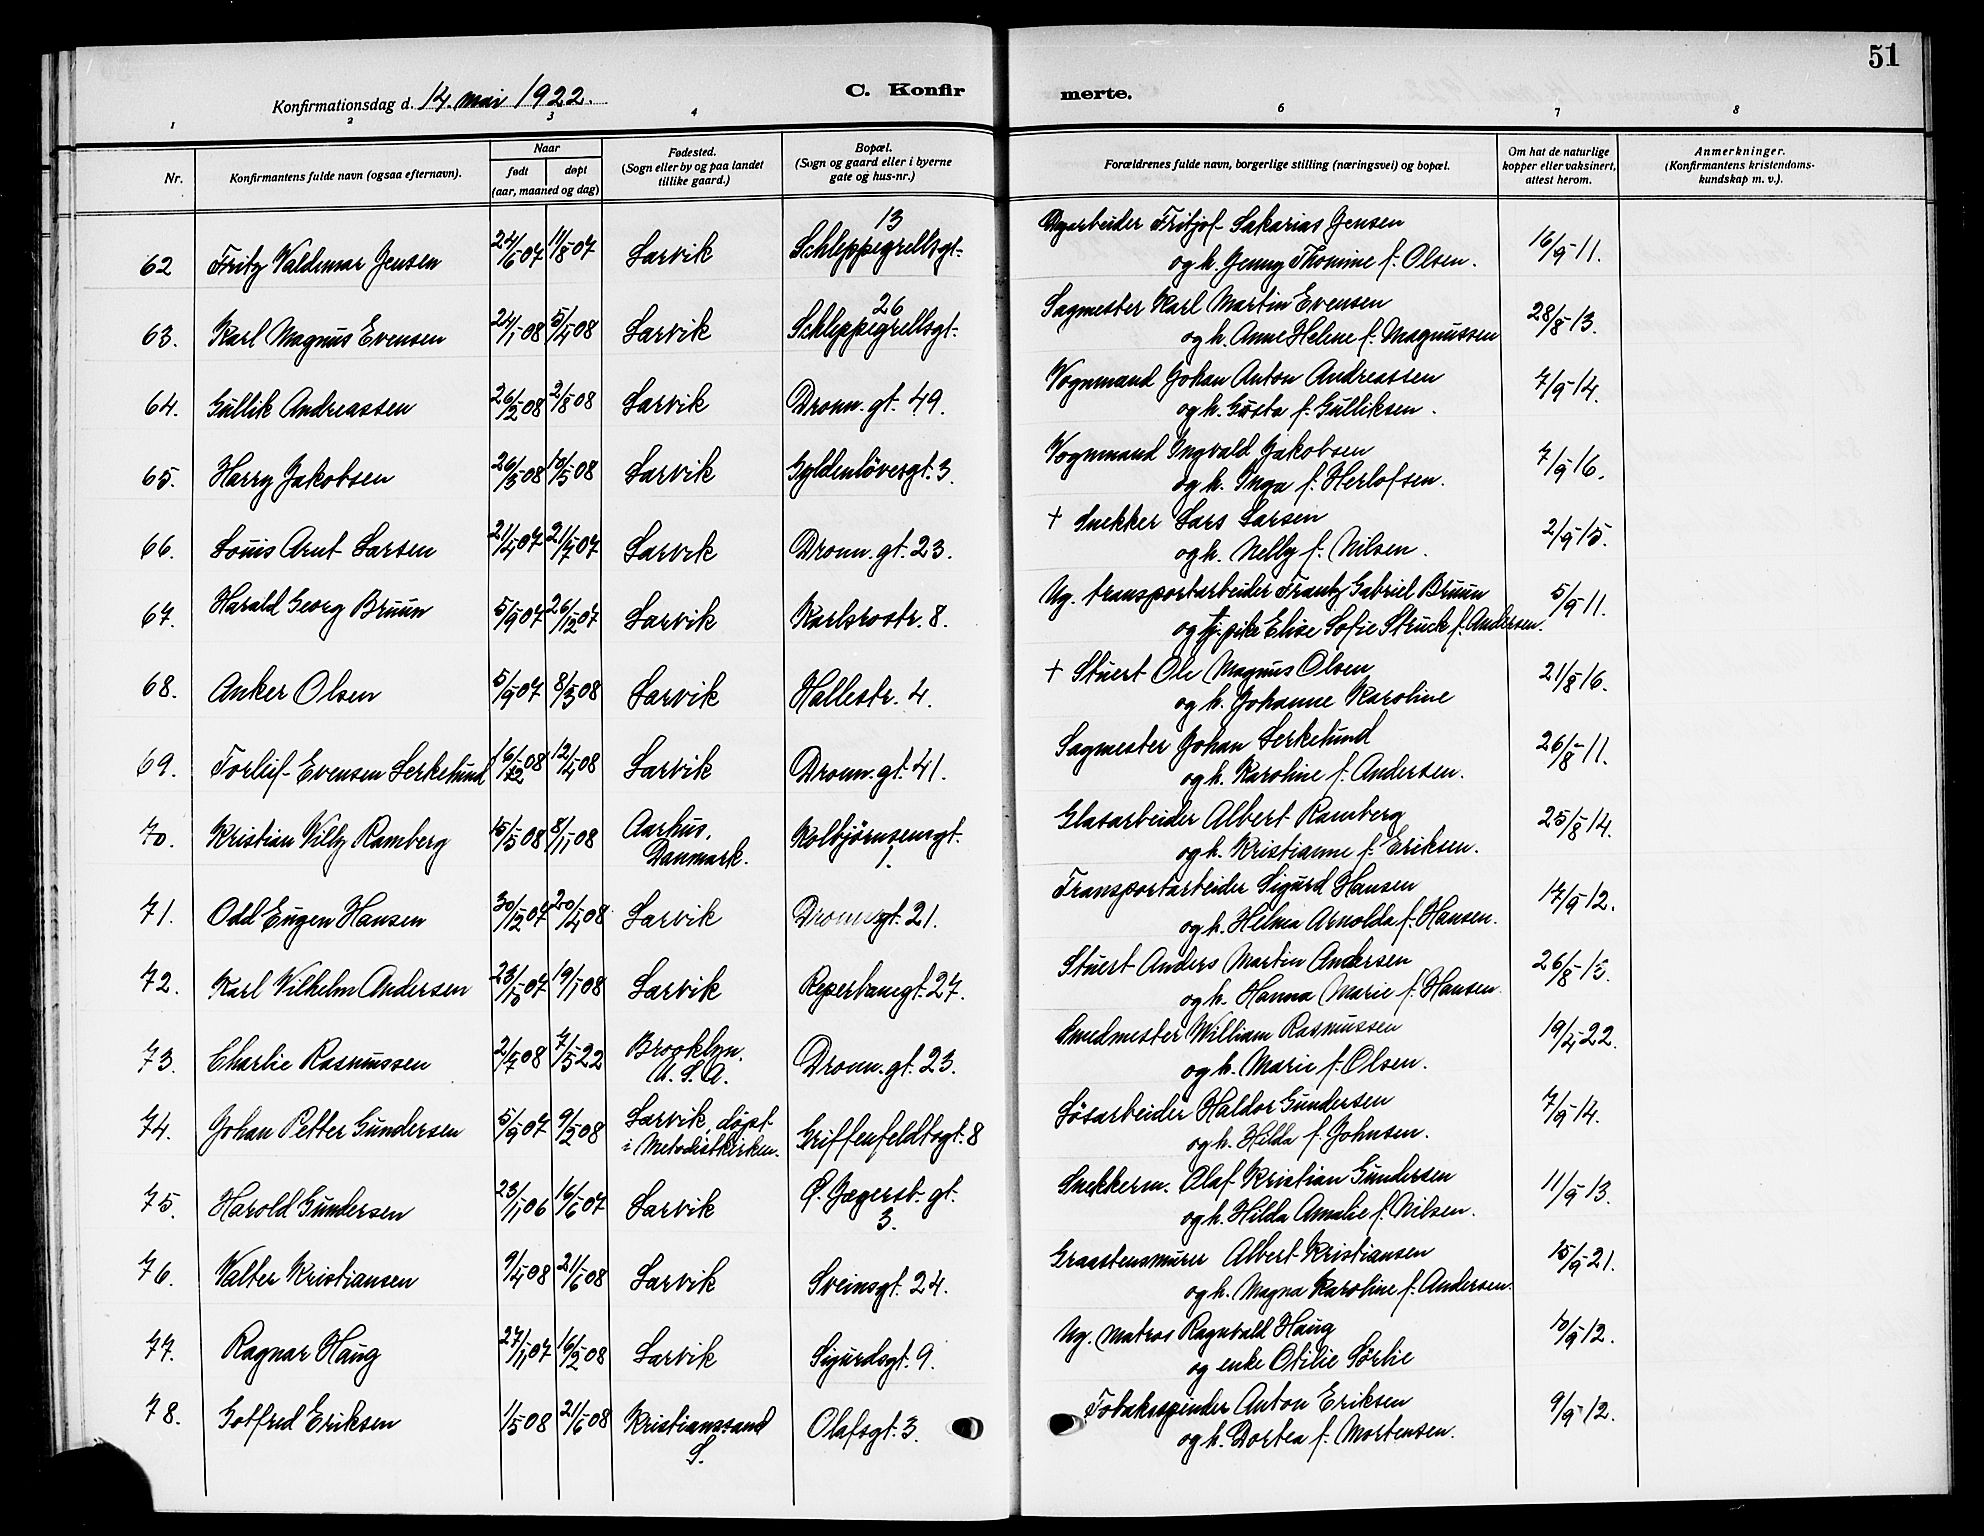 51
Konfirmationsdag d. 14. mai 1922.
C. Konfir
merte.
1 2 3 4 6 7 8
Nr.
Konfirmantens fulde navn (ogsaa efternavn).
Naar
født døpt
(aar, maaned og dag)
Fødested.
(Sogn eller by og paa landet
tillike gaard.)
Bopæl.
(Sogn og gaard eller i byerne
gate og hus-nr.)
Forældrenes fulde navn, borgerlige stilling (næringsvei) og bopæl.
Om hat de naturlige
kopper eller vaksinert,
attest herom.
Anmerkninger.
(Konfirmantens kristendoms-
kundskap m. v.).
13
62 Fritz Valdemar Jensen 24/6 07 11/8 07 Larvik Schleppegrellsgt. Fritjof Sakarias Jensen 16/9-11.
og h. Jenny Thomine f. Olsen.
26
63. Karl Magnus Evensen 24/1 08 5/4 08 Larvik Schleppegrellsgt. Sagmester Karl Martin Evensen 28/8-13.
og h. Anne Helene f. Magnussen
64. Gullik Andreassen 26/2 08 2/8 08 Larvik Dronn. gt. 49. Vognmand Johan Anton Andreassen 7/9-14.
og h. Gusta f. Gulliksen.
65. Harry Jakobsen 26/3 08 /5 08 Larvik Gyldenløvesgt. 3. Vognmand Ingvald Jakobsen 7/9-16.
og h. Inga f. Herlofsen.
66. Louis Arnt Larsen 21/4 07 21/7 07 Larvik Dronn. gt. 23. † Snekker Lars Larsen 2/9-15.
og h. Nelly f. Nilsen.
67. Harald Georg Bruun 5/9 07 26/12 07 Larvik Karlsrostr. 8. Ug. transportarbeider Frantz Gabriel Bruun 5/9-11.
og tj. pike Elise Sofie Struck f. Andersen.
68. Anker Olsen 5/9 07 8/3 08 Larvik Hallestr. 4. † Stuert Ole Magnus Olsen 21/8-16.
og h. Johanne Karoline
69. Torleif Evensen Lerkelund 16/ 08 12/4 08 Larvik Dronn. gt. 41. Sagmester Johan Lerkelund 26/8-11.
og h. Karoline f. Andersen.
70. Kristian Villy Ramberg 15/5 08 8/11 08 Aarhus, Danmark. Kolbjørnsensgt. 1. Glasarbeider Albert Ramberg 25/8-14.
og h. Kristianne f. Eriksen.
71. Odd Eugen Hansen 30/12 07 20/4 08 Larvik Dronn.gt. 21. Transportarbeider Sigurd Hansen 17/9-12.
og h. Helma Arnolda f. Hansen.
72. Karl Vilhelm Andersen 23/10 07 19/1 08 Larvik Reperbanegt. 27. Stuert Anders Martin Andersen 26/8-15.
og h. Hanna Marie f. Hansen.
73. Charlie Rasmussen 2/7 08 7/5 22 Brooklyn. U. S. A. Dronn. gt. 23. Smedmester William Rasmussen 19/4-22.
og h. Marie f. Olsen.
74. Johan Petter Gundersen 5/9 07 9/2 08 Larvik, døpt i Metodistkirken. Griffenfeldtsgt. 8 Løsarbeider Haldor Gundersen 7/9-14.
og h. Hilda f. Johnsen.
75. Harold Gundersen 23/11 06 16/6 07 Larvik Ø. Jegersb. gt. 3. Snekkerm. Olaf Kristian Gundersen 11/9-13.
og h. Hilda Amalie f. Nilsen.
76. Walter Kristiansen 9/4 08 21/6 08 Larvik Sveinsgt. 24. Graastensmurer Albert Kristiansen 15/9-21.
og h. Magna Karoline f. Andersen.
77. Ragnar Haug 27/11 07 16/2 08 Larvik Sigurdsgt. 9. Ug. matros Ragnvald Haug 10/9-12.
og enke Otilie Sørlie
78. Gotfred Eriksen 1/5 08 21/6 08 Kristianssand S. Olafsgt. 3. Tobakspinder Anton Eriksen 9/9-12.
og h. Dortea f. Mortensen.